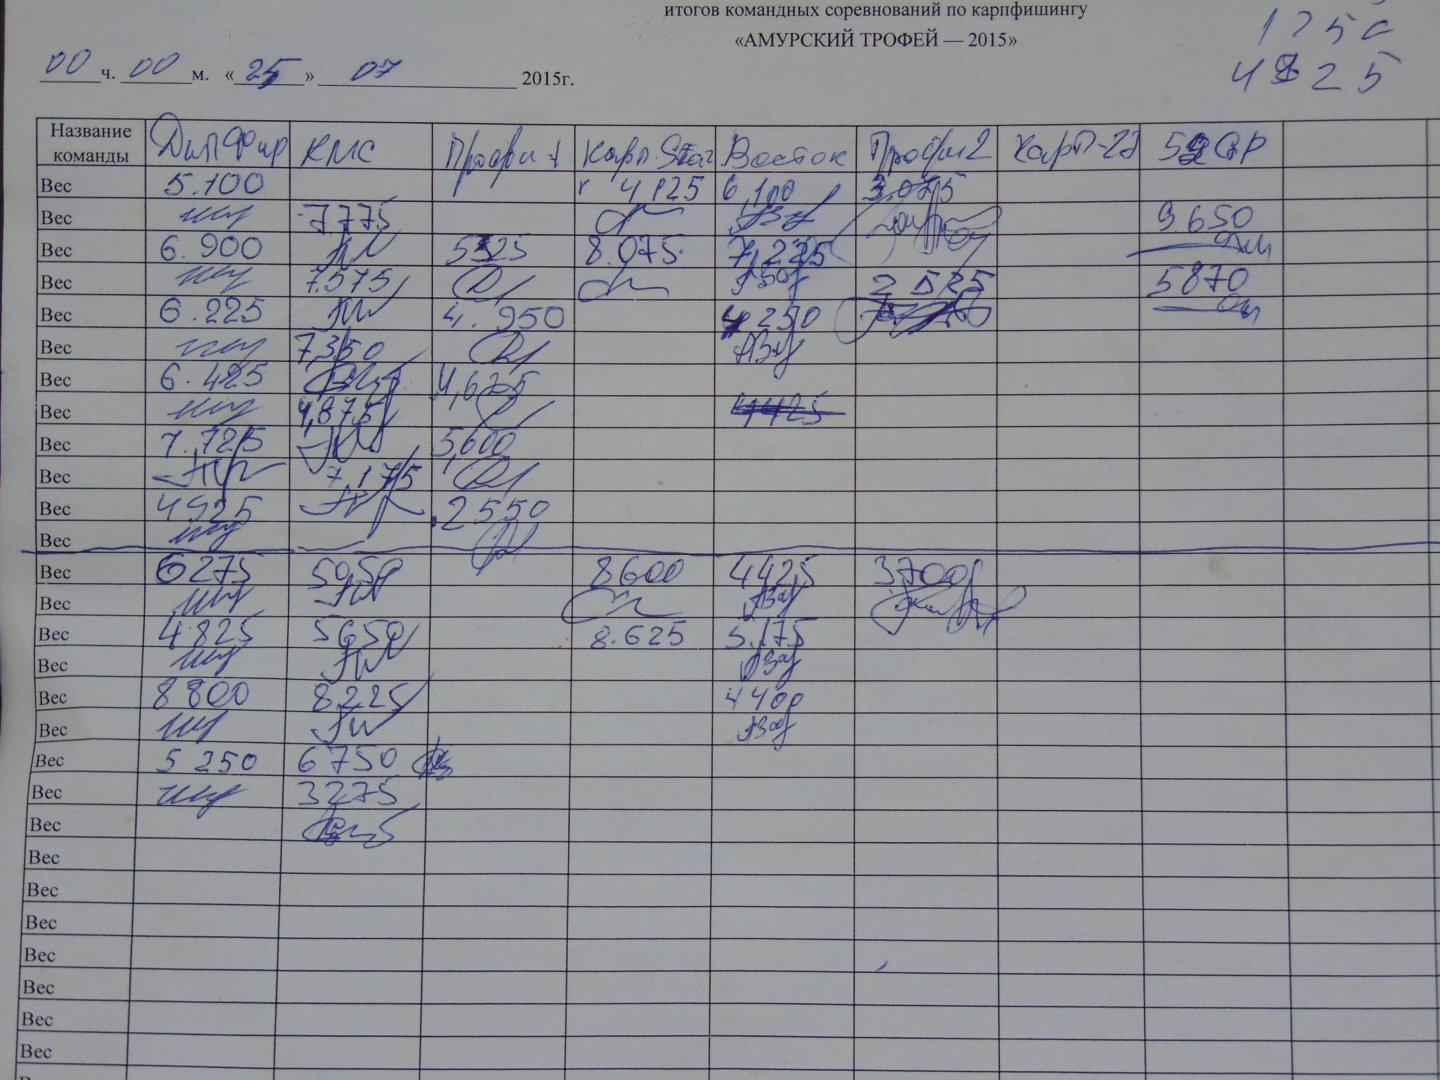 итогов командных соревнований по карпфишингу
«АМУРСКИЙ ТРОФЕЙ — 2015»
1250
4825
00 ч. 00 м. «25» 07 2015г.
Название команды КМС Профи 1 Карп Star Восток Профи 2 Карп-27
Вес 5.100 4125 6,100 3.075
Вес 7775 9.650
Вес 6.900 5325 8.075 7,225
Вес 7.575 2525 5870
Вес 6.225 4.950 4250
Вес 7,350
Вес 6.425 4,625
Вес 4,875 4425
Вес 7.725 5,600
Вес 7,175
Вес 4925 2550
Вес
Вес 6275 5950 8600 4425 3700
Вес
Вес 4825 5650 8.625 5.175
Вес
Вес 8800 8225 4400
Вес
Вес 5250 6750
Вес 3275
Вес
Вес
Вес
Вес
Вес
Вес
Вес
Вес